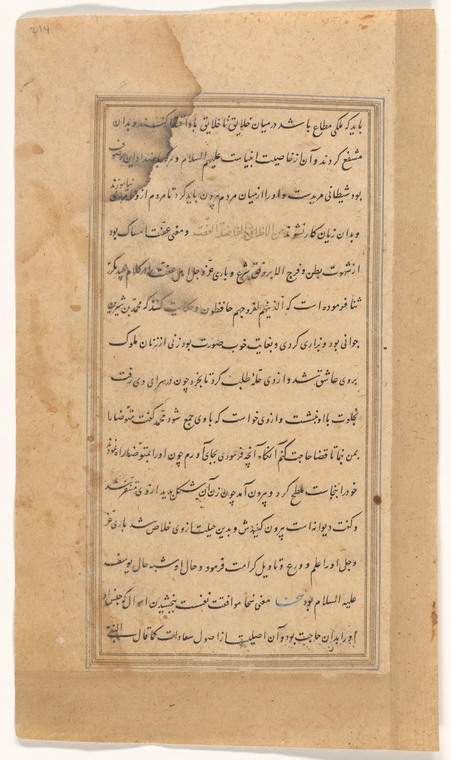 باید که ملکی مطاع باشد درمیان خلایق تا خلایق باو وبدان
مشفع کردند وآن از خاصیت انبیاست علیهم السلام و
بود شیطانی مریدست و اورا از میان مردم بیرون باید کرد تا مردم ازو
وبدان زیان کار نشوند من الاخلاق الفاضلة العفت ومعنی عفت امساک بود
از شهوت بطن و فرج الا بروفق شرع و باری عزّ وجل اهل عفت را در کلام مجید
ثنا فرموده است که الذینهم لفروجهم حافظون و حکایت کنند که محمد بن شیرین
جوانی بود و بزازی کردی و بغایت خوب صورت بود زنی از زنان ملوک
بروی عاشق شد و ازوی حله طلب کرد تا بخرد چون در سرای وی رفت
بخلوت با او بنشست و ازوی خواست که با وی جمع شود محمد گفت متوضا را
بمن نما تا قضا حاجت کنم آنگاه آنچه فرمودی بجای آورم چون اورا بمتوضا راه نمودند
خودرا بنجاست ملطخ کرد و بیرون آمد چون زن آن شکل بدید ازوی متنفر شد
وگفت دیوانه است بیرون کنیدش و بدین حیلت ازوی خلاص شد باری عزّ
وجل اورا علم و ورع و تاویل کرامت فرمود و حال او شبه حال یوسف
علیه السلام بود سخا معنی سخا موافقت نفست ببخشیدن اموال
اورا بدان حاجت بود و آن اصلیست از اصول سعادات کما قال النبی
214